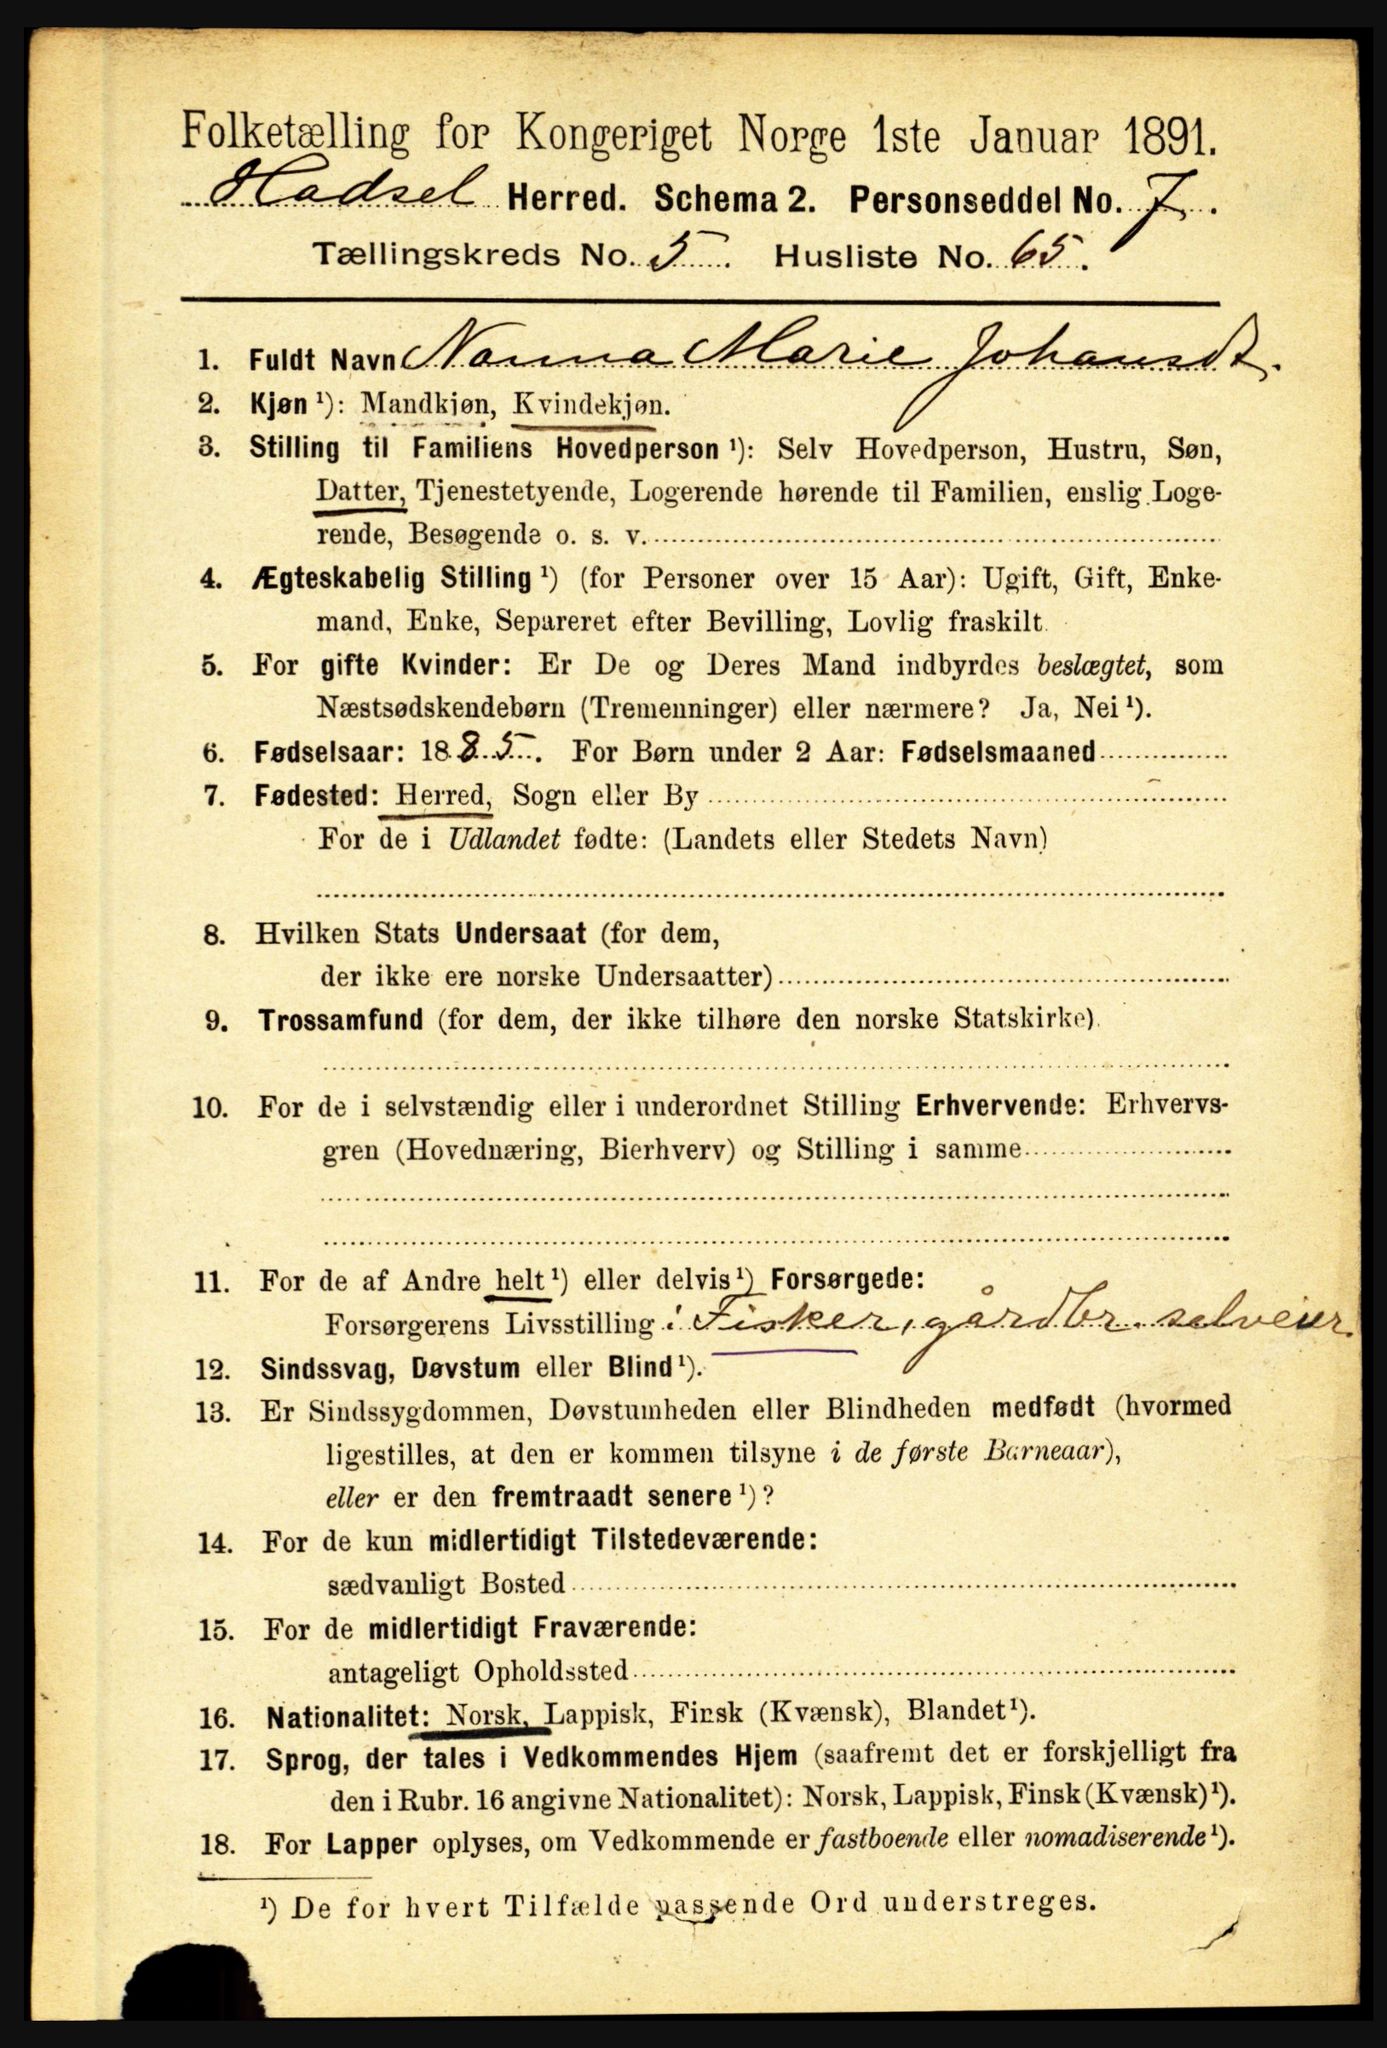 Folketælling for Kongeriget Norge 1ste Januar 1891.
Hadsel Herred. Schema 2. Personseddel No. 7.
Tællingskreds No. 5. Husliste No. 65.
1. Fuldt Navn Nanna Marie Johansdt.
2. Kjøn ¹): Mandkjøn, Kvindekjøn.
3. Stilling til Familiens Hovedperson ¹): Selv Hovedperson, Hustru, Søn,
Datter, Tjenestetyende, Logerende hørende til Familien, enslig Loge-
rende, Besøgende o. s. v.
4. Ægteskabelig Stilling ¹) (for Personer over 15 Aar): Ugift, Gift, Enke-
mand, Enke, Separeret efter Bevilling, Lovlig fraskilt.
5. For gifte Kvinder: Er De og Deres Mand indbyrdes beslægtet, som
Næstsødskendebørn (Tremenninger) eller nærmere? Ja, Nei ¹).
6. Fødselsaar: 1885. For Børn under 2 Aar: Fødselsmaaned
7. Fødested: Herred, Sogn eller By
For de i Udlandet fødte: (Landets eller Stedets Navn)
8. Hvilken Stats Undersaat (for dem,
der ikke ere norske Undersaatter)
9. Trossamfund (for dem, der ikke tilhøre den norske Statskirke).
10. For de i selvstændig eller i underordnet Stilling Erhvervende: Erhvervs-
gren (Hovednæring, Bierhverv) og Stilling i samme
11. For de af Andre helt ¹) eller delvis ¹) Forsørgede:
Forsørgerens Livsstilling: Fisker, gårdbr. selveier.
12. Sindssvag, Døvstum eller Blind ¹).
13. Er Sindssygdommen, Døvstumheden eller Blindheden medfødt (hvormed
ligestilles, at den er kommen tilsyne i de første Barneaar),
eller er den fremtraadt senere ¹)?
14. For de kun midlertidigt Tilstedeværende:
sædvanligt Bosted
15. For de midlertidigt Fraværende:
antageligt Opholdssted
16. Nationalitet: Norsk, Lappisk, Finsk (Kvænsk), Blandet ¹).
17. Sprog, der tales i Vedkommendes Hjem (saafremt det er forskjelligt fra
den i Rubr. 16 angivne Nationalitet): Norsk, Lappisk, Finsk (Kvænsk) ¹).
18. For Lapper oplyses, om Vedkommende er fastboende eller nomadiserende ¹).
¹) De for hvert Tilfælde passende Ord understreges.